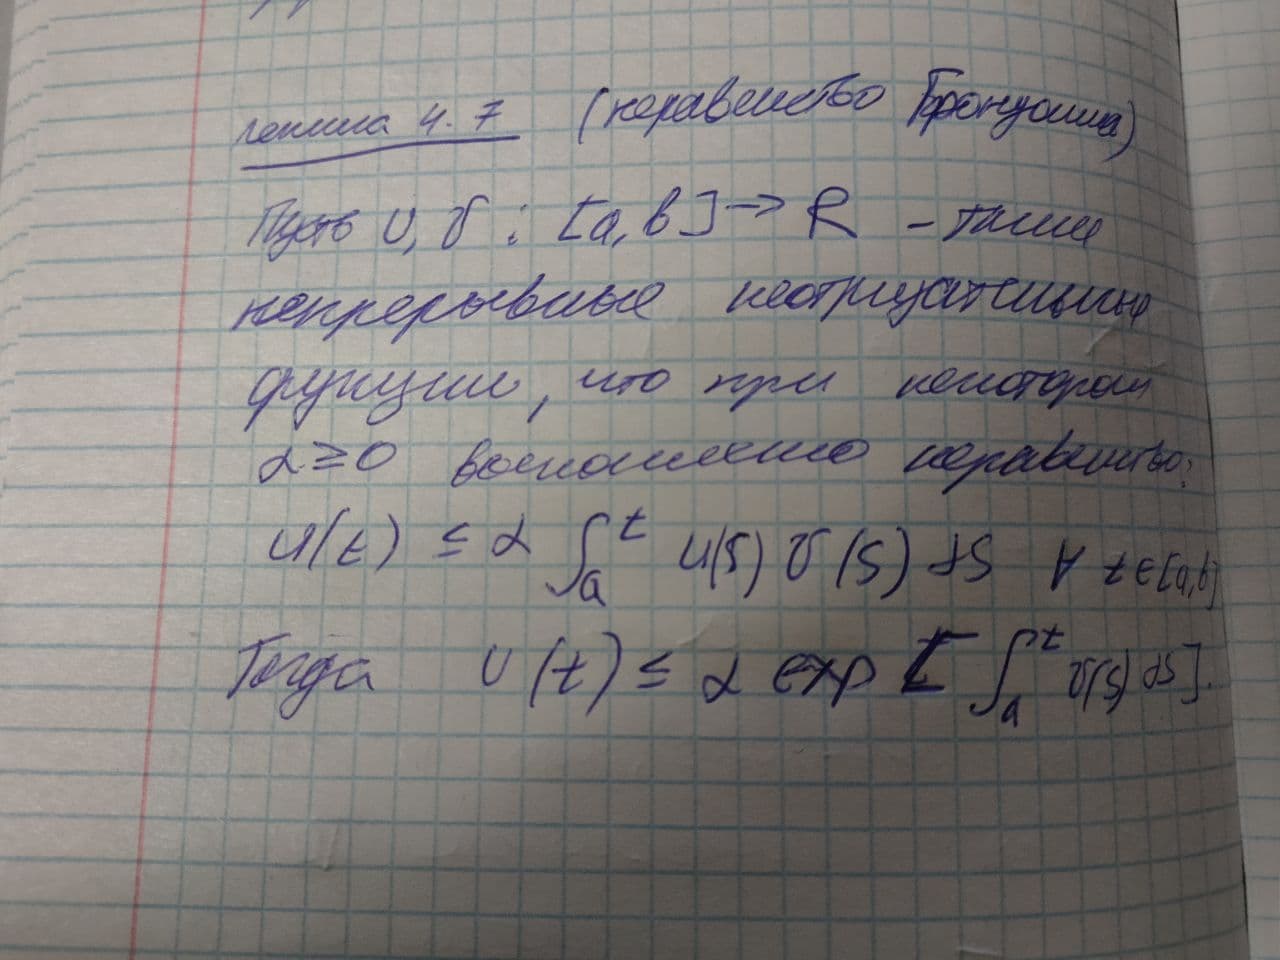 лемма 4.7 (неравенство Гронуолла)
Пусть U, V : [a, b] → R – такие
непрерывные неотрицательные
функции, что при некотором
α ≥ 0 выполнено неравенство:
U(t) ≤ α ∫ₐᵗ U(S) V(S) dS ∀ t ∈ [a, b]
Тогда U(t) ≤ α exp [ ∫ₐᵗ V(S) dS ].